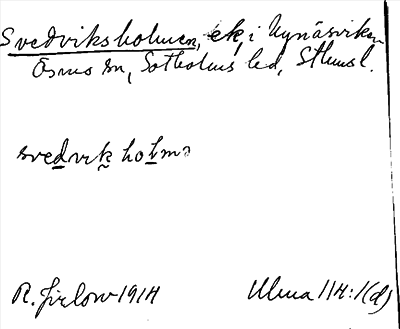 Svedviksholmen, ek, i Nynäsviken
Ösmo sn, Sotholms hd, Sthmsl.
svedvik holmə
R. Jirlow 1914
Ulma 114:1(d)